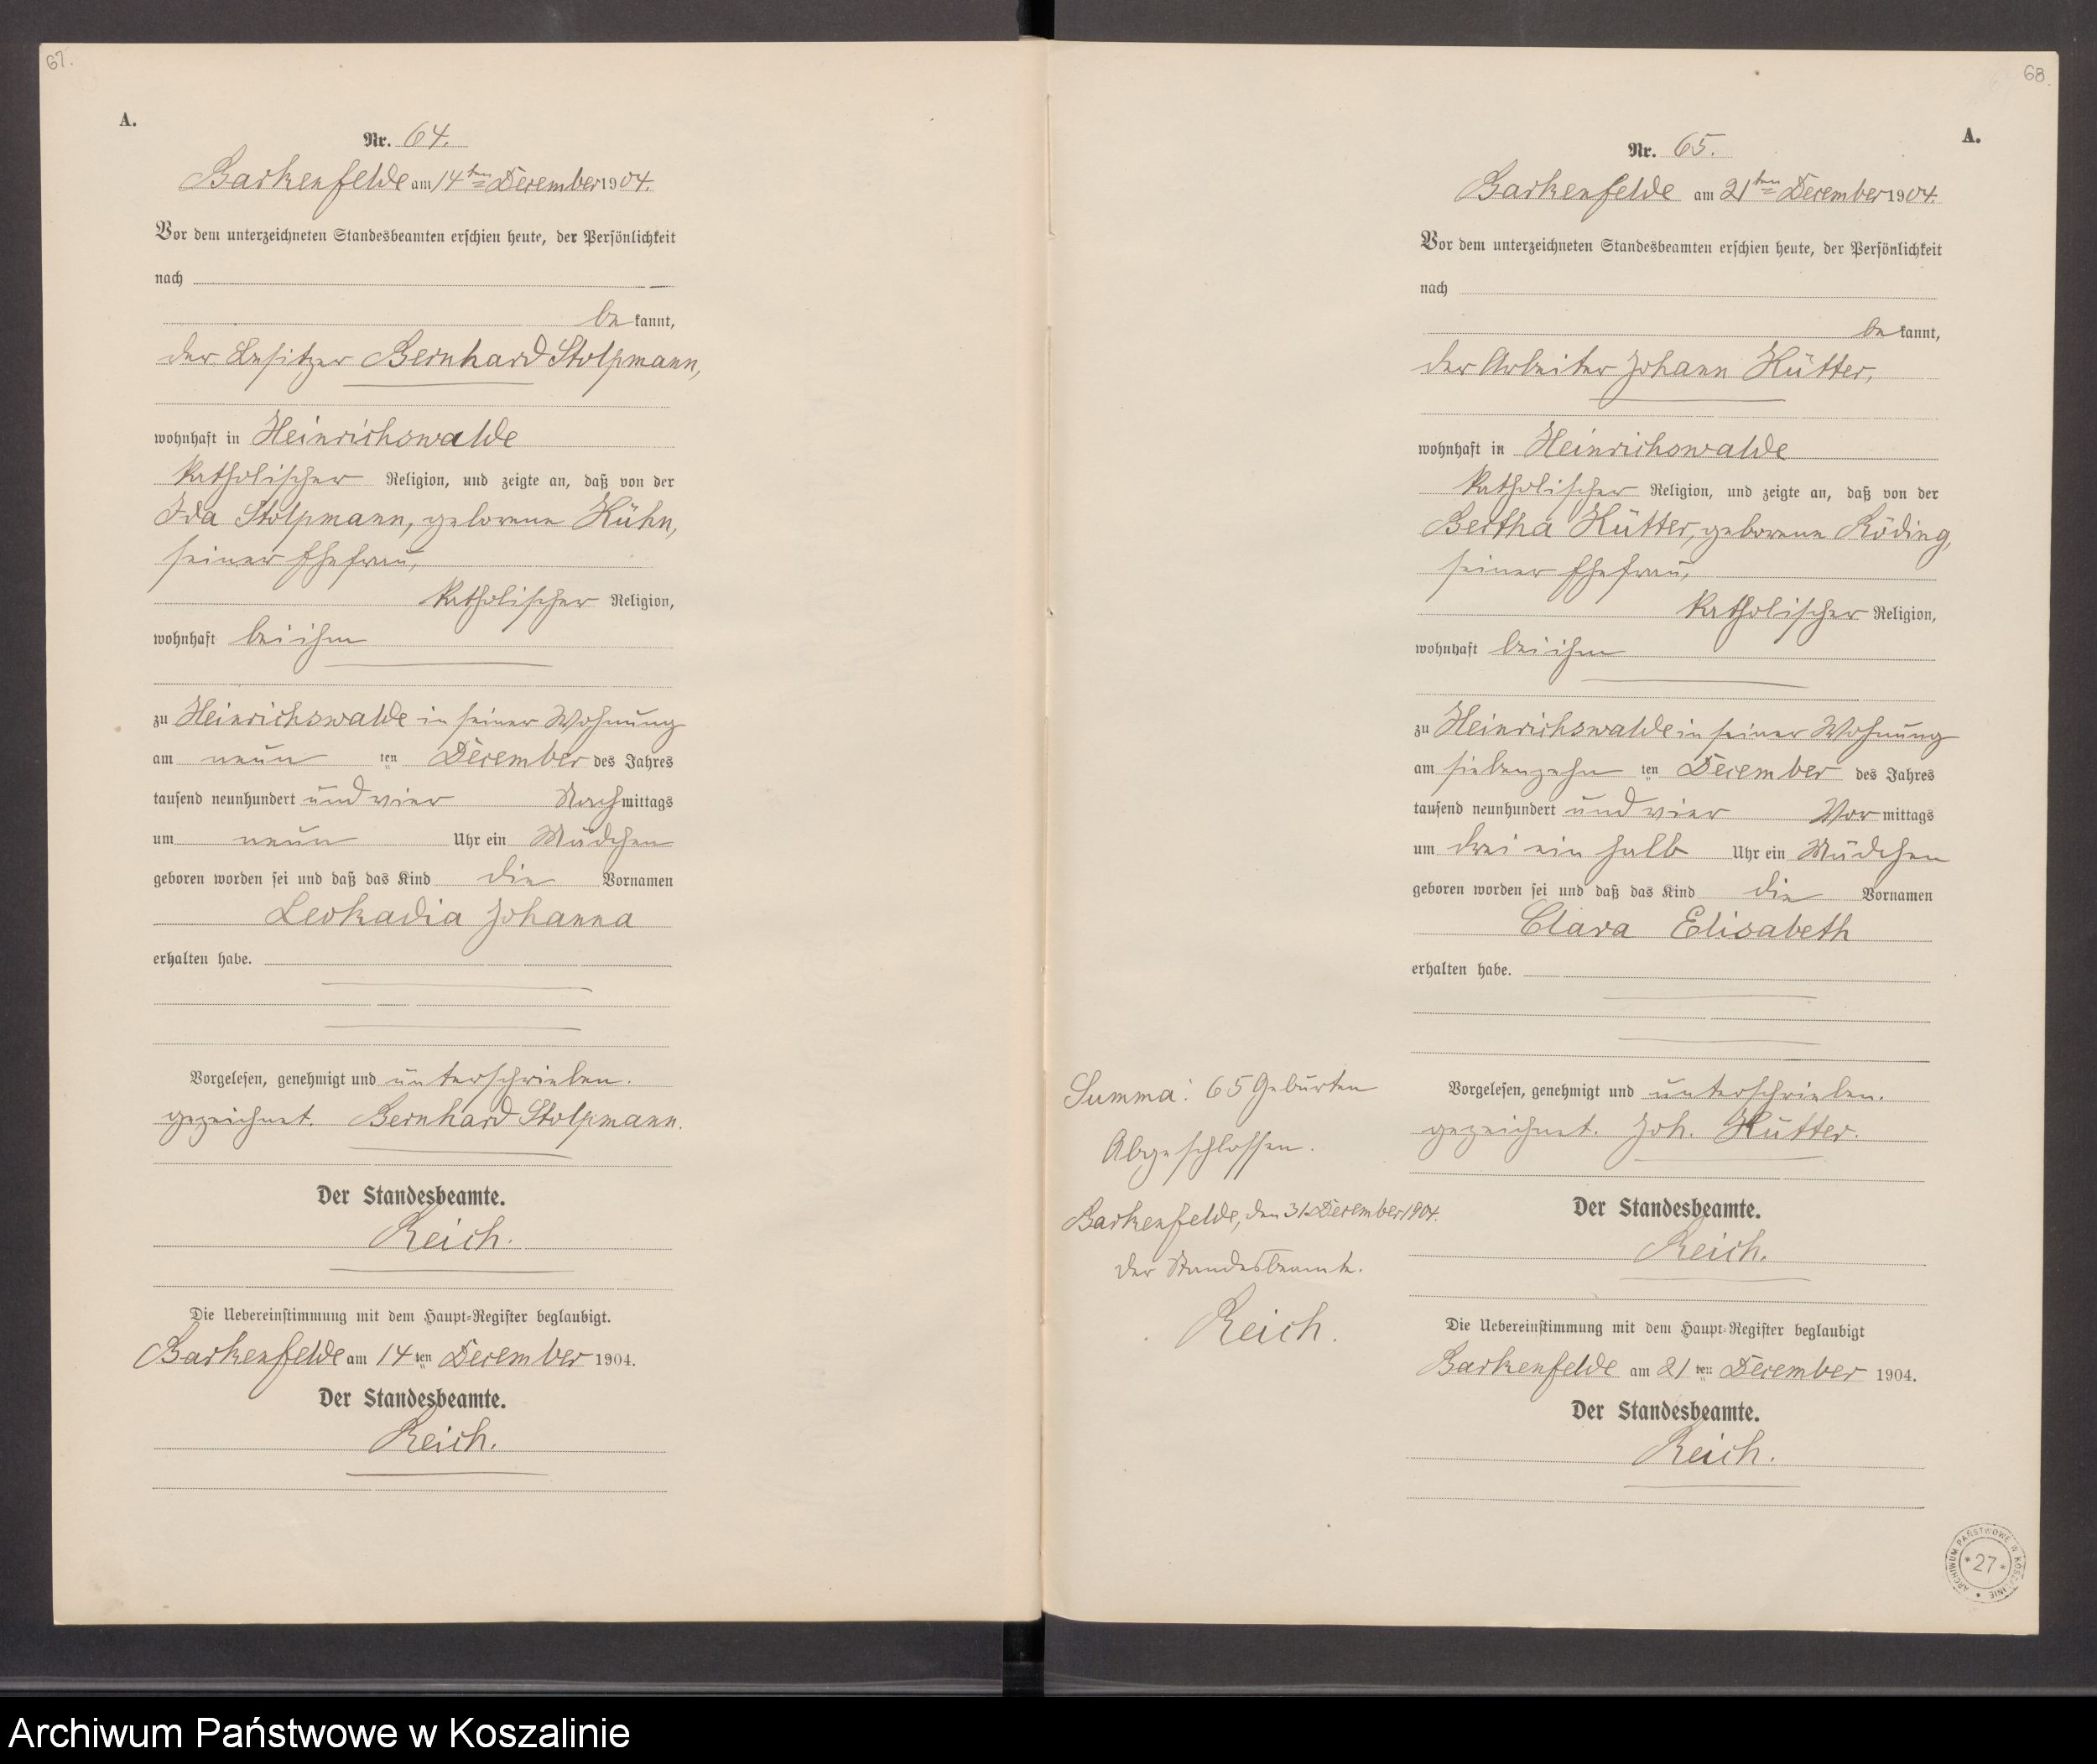 67.
A.
Nr. 64.
Barkenfelde am 14ten December 1904.
Vor dem unterzeichneten Standesbeamten erschien heute, der Persönlichkeit
nach
bekannt,
der Besitzer Bernhard Stolpmann,
wohnhaft in Heinrichswalde
katholischer Religion, und zeigte an, daß von der
Ida Stolpmann, geborene Kühn,
seiner Ehefrau,
katholischer Religion,
wohnhaft bei ihm
zu Heinrichswalde in seiner Wohnung
am neun ten December des Jahres
tausend neunhundert und vier Nachmittags
um neun Uhr ein Mädchen
geboren worden sei und daß das Kind die Vornamen
Leokadia Johanna
erhalten habe.
Vorgelesen, genehmigt und unterschrieben.
gezeichnet. Bernhard Stolpmann.
Der Standesbeamte.
Reich.
Die Uebereinstimmung mit dem Haupt-Register beglaubigt.
Barkenfelde am 14 ten December 1904.
Der Standesbeamte.
Reich.
68.
A.
Nr. 65.
Barkenfelde am 21ten December 1904.
Vor dem unterzeichneten Standesbeamten erschien heute, der Persönlichkeit
nach
bekannt,
der Arbeiter Johann Hütter,
wohnhaft in Heinrichswalde
katholischer Religion, und zeigte an, daß von der
Bertha Hütter, geborene Röding,
seiner Ehefrau,
katholischer Religion,
wohnhaft bei ihm
zu Heinrichswalde in seiner Wohnung
am siebenzehn ten December des Jahres
tausend neunhundert und vier Vormittags
um drei ein halb Uhr ein Mädchen
geboren worden sei und daß das Kind die Vornamen
Clara Elisabeth
erhalten habe.
Vorgelesen, genehmigt und unterschrieben.
gezeichnet. Joh. Hütter.
Der Standesbeamte.
Reich.
Die Uebereinstimmung mit dem Haupt-Register beglaubigt
Barkenfelde am 21 ten December 1904.
Der Standesbeamte.
Reich.
Summa: 65 Geburten
Abgeschlossen.
Barkenfelde, den 31. December 1904.
Der Standesbeamte.
Reich.
ARCHIWUM PAŃSTWOWE W KOSZALINIE
* 27 *
Archiwum Państwowe w Koszalinie